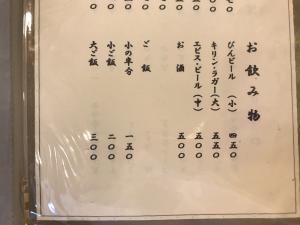 お飲み物
びんビール (小) 四五〇
キリン・ラガー(大) 五五〇
エビス・ビール(中) 五〇〇
お酒 五〇〇
ご飯
小の半分 一五〇
小ご飯 二〇〇
大ご飯 三〇〇